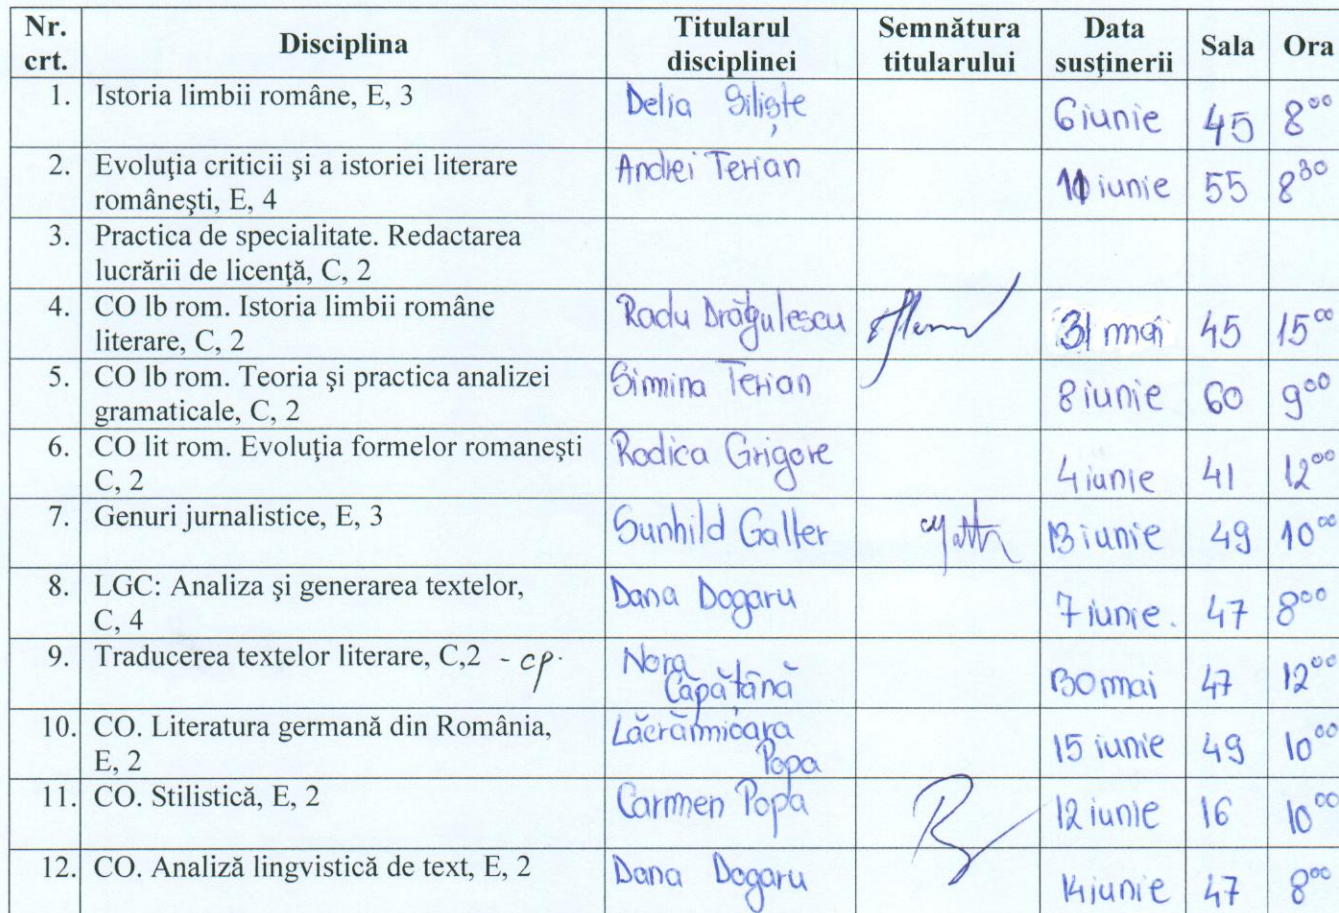 Nr. crt. Disciplina Titularul disciplinei Semnătura titularului Data susţinerii Sala Ora
1. Istoria limbii române, E, 3 Delia Siliște 6 iunie 45 8⁰⁰
2. Evoluţia criticii şi a istoriei literare româneşti, E, 4 Andrei Terian 11 iunie 55 8³⁰
3. Practica de specialitate. Redactarea lucrării de licenţă, C, 2
4. CO lb rom. Istoria limbii române literare, C, 2 Radu Drăgulescu 31 mai 45 15⁰⁰
5. CO lb rom. Teoria şi practica analizei gramaticale, C, 2 Simina Terian 8 iunie 60 9⁰⁰
6. CO lit rom. Evoluţia formelor romaneşti C, 2 Rodica Grigore 4 iunie 41 12⁰⁰
7. Genuri jurnalistice, E, 3 Sunhild Galter 13 iunie 49 10⁰⁰
8. LGC: Analiza şi generarea textelor, C, 4 Dana Dogaru 7 iunie. 47 8⁰⁰
9. Traducerea textelor literare, C,2 - cp. Nora Căpățână 30 mai 47 12⁰⁰
10. CO. Literatura germană din România, E, 2 Lăcrămioara Popa 15 iunie 49 10⁰⁰
11. CO. Stilistică, E, 2 Carmen Popa 12 iunie 16 10⁰⁰
12. CO. Analiză lingvistică de text, E, 2 Dana Dogaru 14 iunie 47 8⁰⁰